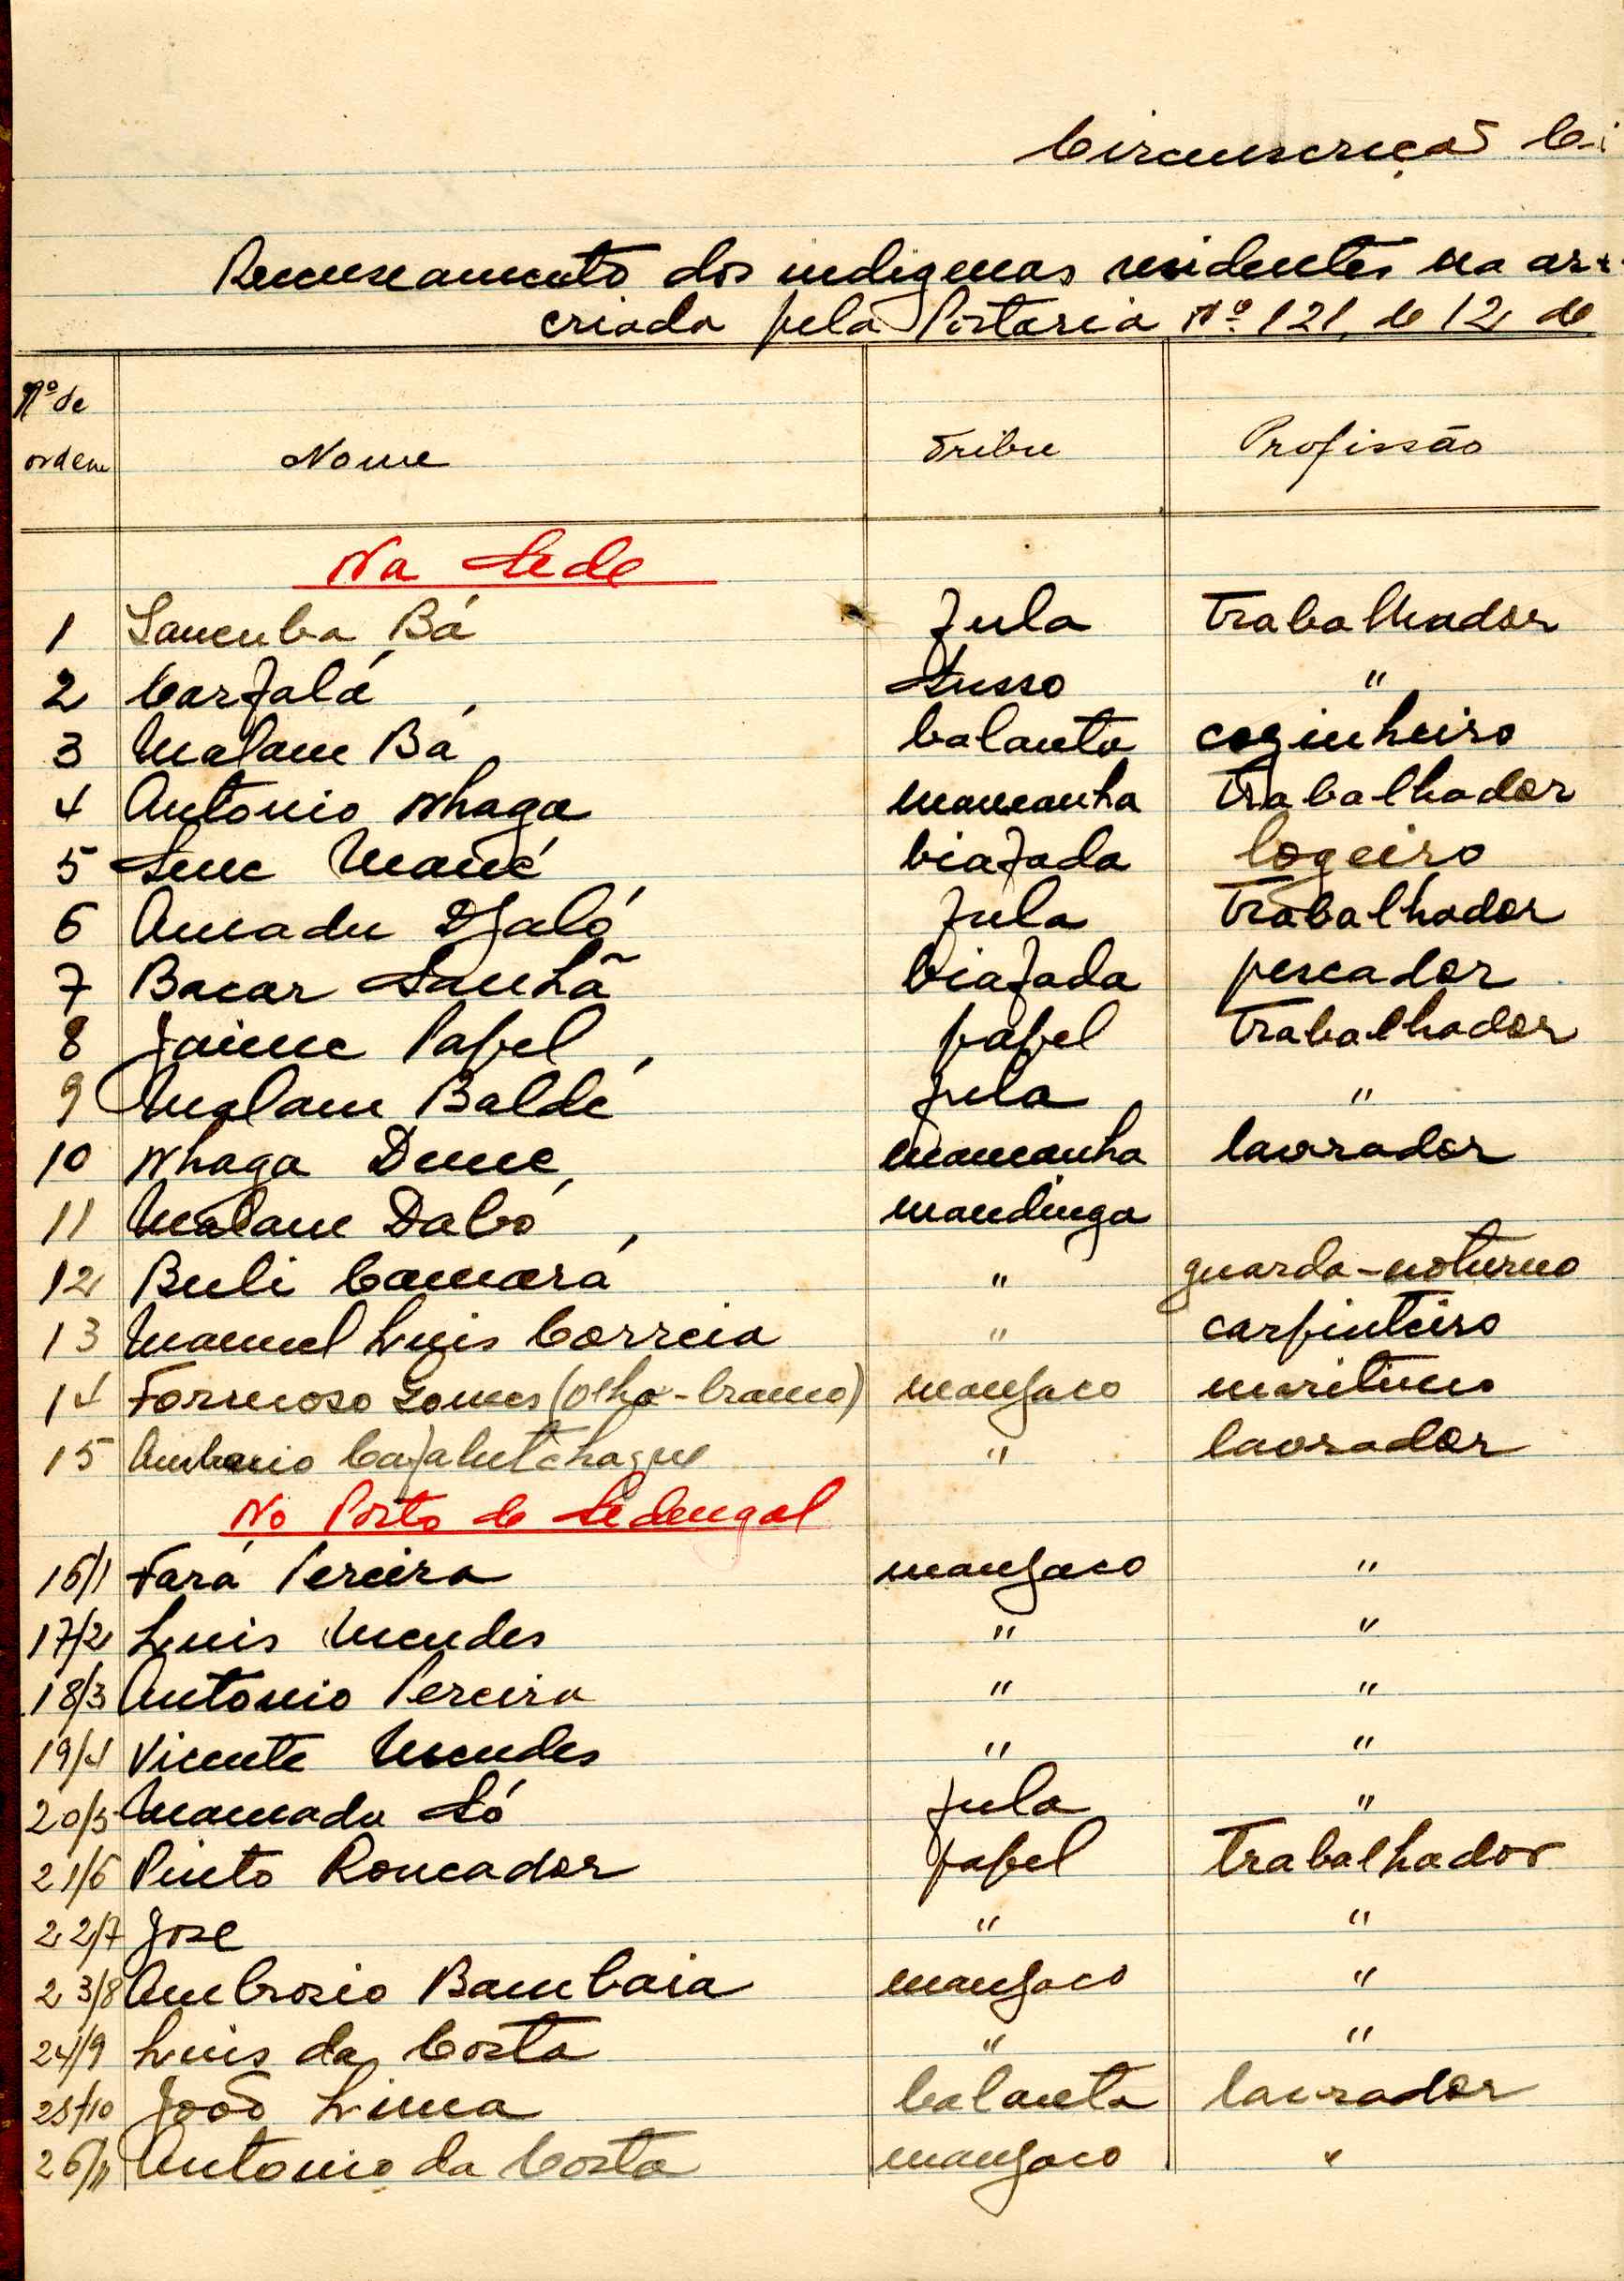 Circunscrição Ci
Recenseamento dos indigenas residentes na
criada pela Portaria Nº 121, de 12 de
Nº de
ordem Nome Tribu Profissão
Na Sede
1 Sancuba Bá fula Trabalhador
2 Carfalá Susso "
3 Malam Bá balanta cozinheiro
4 Antonio Nhaga mancanha Trabalhador
5 Mané biafada logeiro
6 Amadu Djaló fula Trabalhador
7 Bacar Sanhã biafada pescador
8 Jaime Papel papel Trabalhador
9 Malam Baldé fula "
10 Nhaga Dume mancanha lavrador
11 Malam Dabó mandinga
12 Buli Camará " guarda-noturno
13 Manuel Luis Correia " carpinteiro
14 Formoso Gomes (olho-branco) manjaco maritimo
15 " lavrador
No Posto de Sedengal
16/1 Fará Pereira manjaco "
17/2 Luis Mendes " "
18/3 Antonio Pereira " "
19/4 Vicente Mendes " "
20/5 Mamadu Só fula "
21/6 Pinto Roncador papel Trabalhador
22/7 José " "
23/8 Ambrosio Bambaia manjaco "
24/9 Luis da Costa " "
25/10 João Lima balanta lavrador
26/11 Antonio da Costa manjaco "